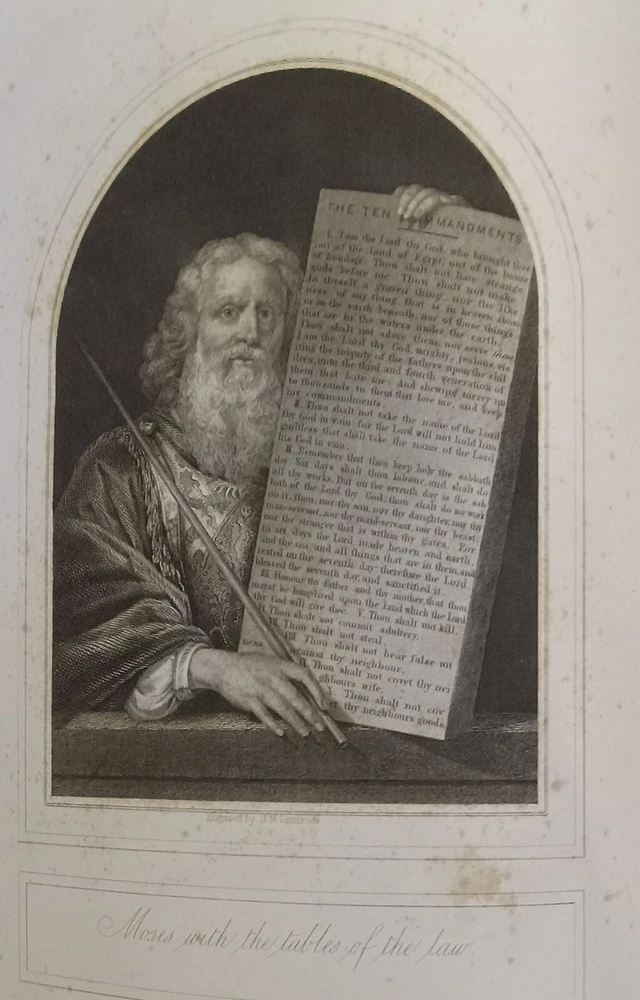 THE TEN COMMANDMENTS
I. I am the Lord thy God, who brought thee
out of the land of Egypt, out of the house
of bondage. Thou shalt not have strange
gods before me. Thou shalt not make
to thyself a graven thing, nor the like
ness of any thing that is in heaven above
or in the earth beneath, nor of those things
that are in the waters under the earth.
Thou shalt not adore them, nor serve them
I am the Lord thy God, mighty, jealous, vis
iting the iniquity of the fathers upon the chil
dren, unto the third and fourth generation of
them that hate me: And shewing mercy un
to thousands to them that love me, and keep
my commandments.
II. Thou shalt not take the name of the Lord
thy God in vain: for the Lord will not hold him
guiltless that shall take the name of the Lord
his God in vain.
Remember that thou keep holy the sabbath
day. Six days shalt thou labour, and shalt do
all thy works. But on the seventh day is the sab
bath of the Lord thy God: thou shalt do no work
on it, thou, nor thy son, nor thy daughter, nor thy
man-servant, nor thy maid-servant, nor thy beast,
nor the stranger that is within thy gates. For
in six days the Lord made heaven and earth,
and the sea, and all things that are in them, and
rested on the seventh day: therefore the Lord
blessed the seventh day, and sanctified it.
Honour thy father and thy mother, that thou
mayst be longlived upon the land which the Lord
thy God will give thee. V. Thou shalt not kill.
Thou shalt not commit adultery.
Thou shalt not steal.
Thou shalt not bear false wit
ness against thy neighbour.
Thou shalt not covet thy nei
ghbours wife.
X. Thou shalt not cov
et thy neighbours goods.
Engraved by J.B.
Moses with the tables of the law.